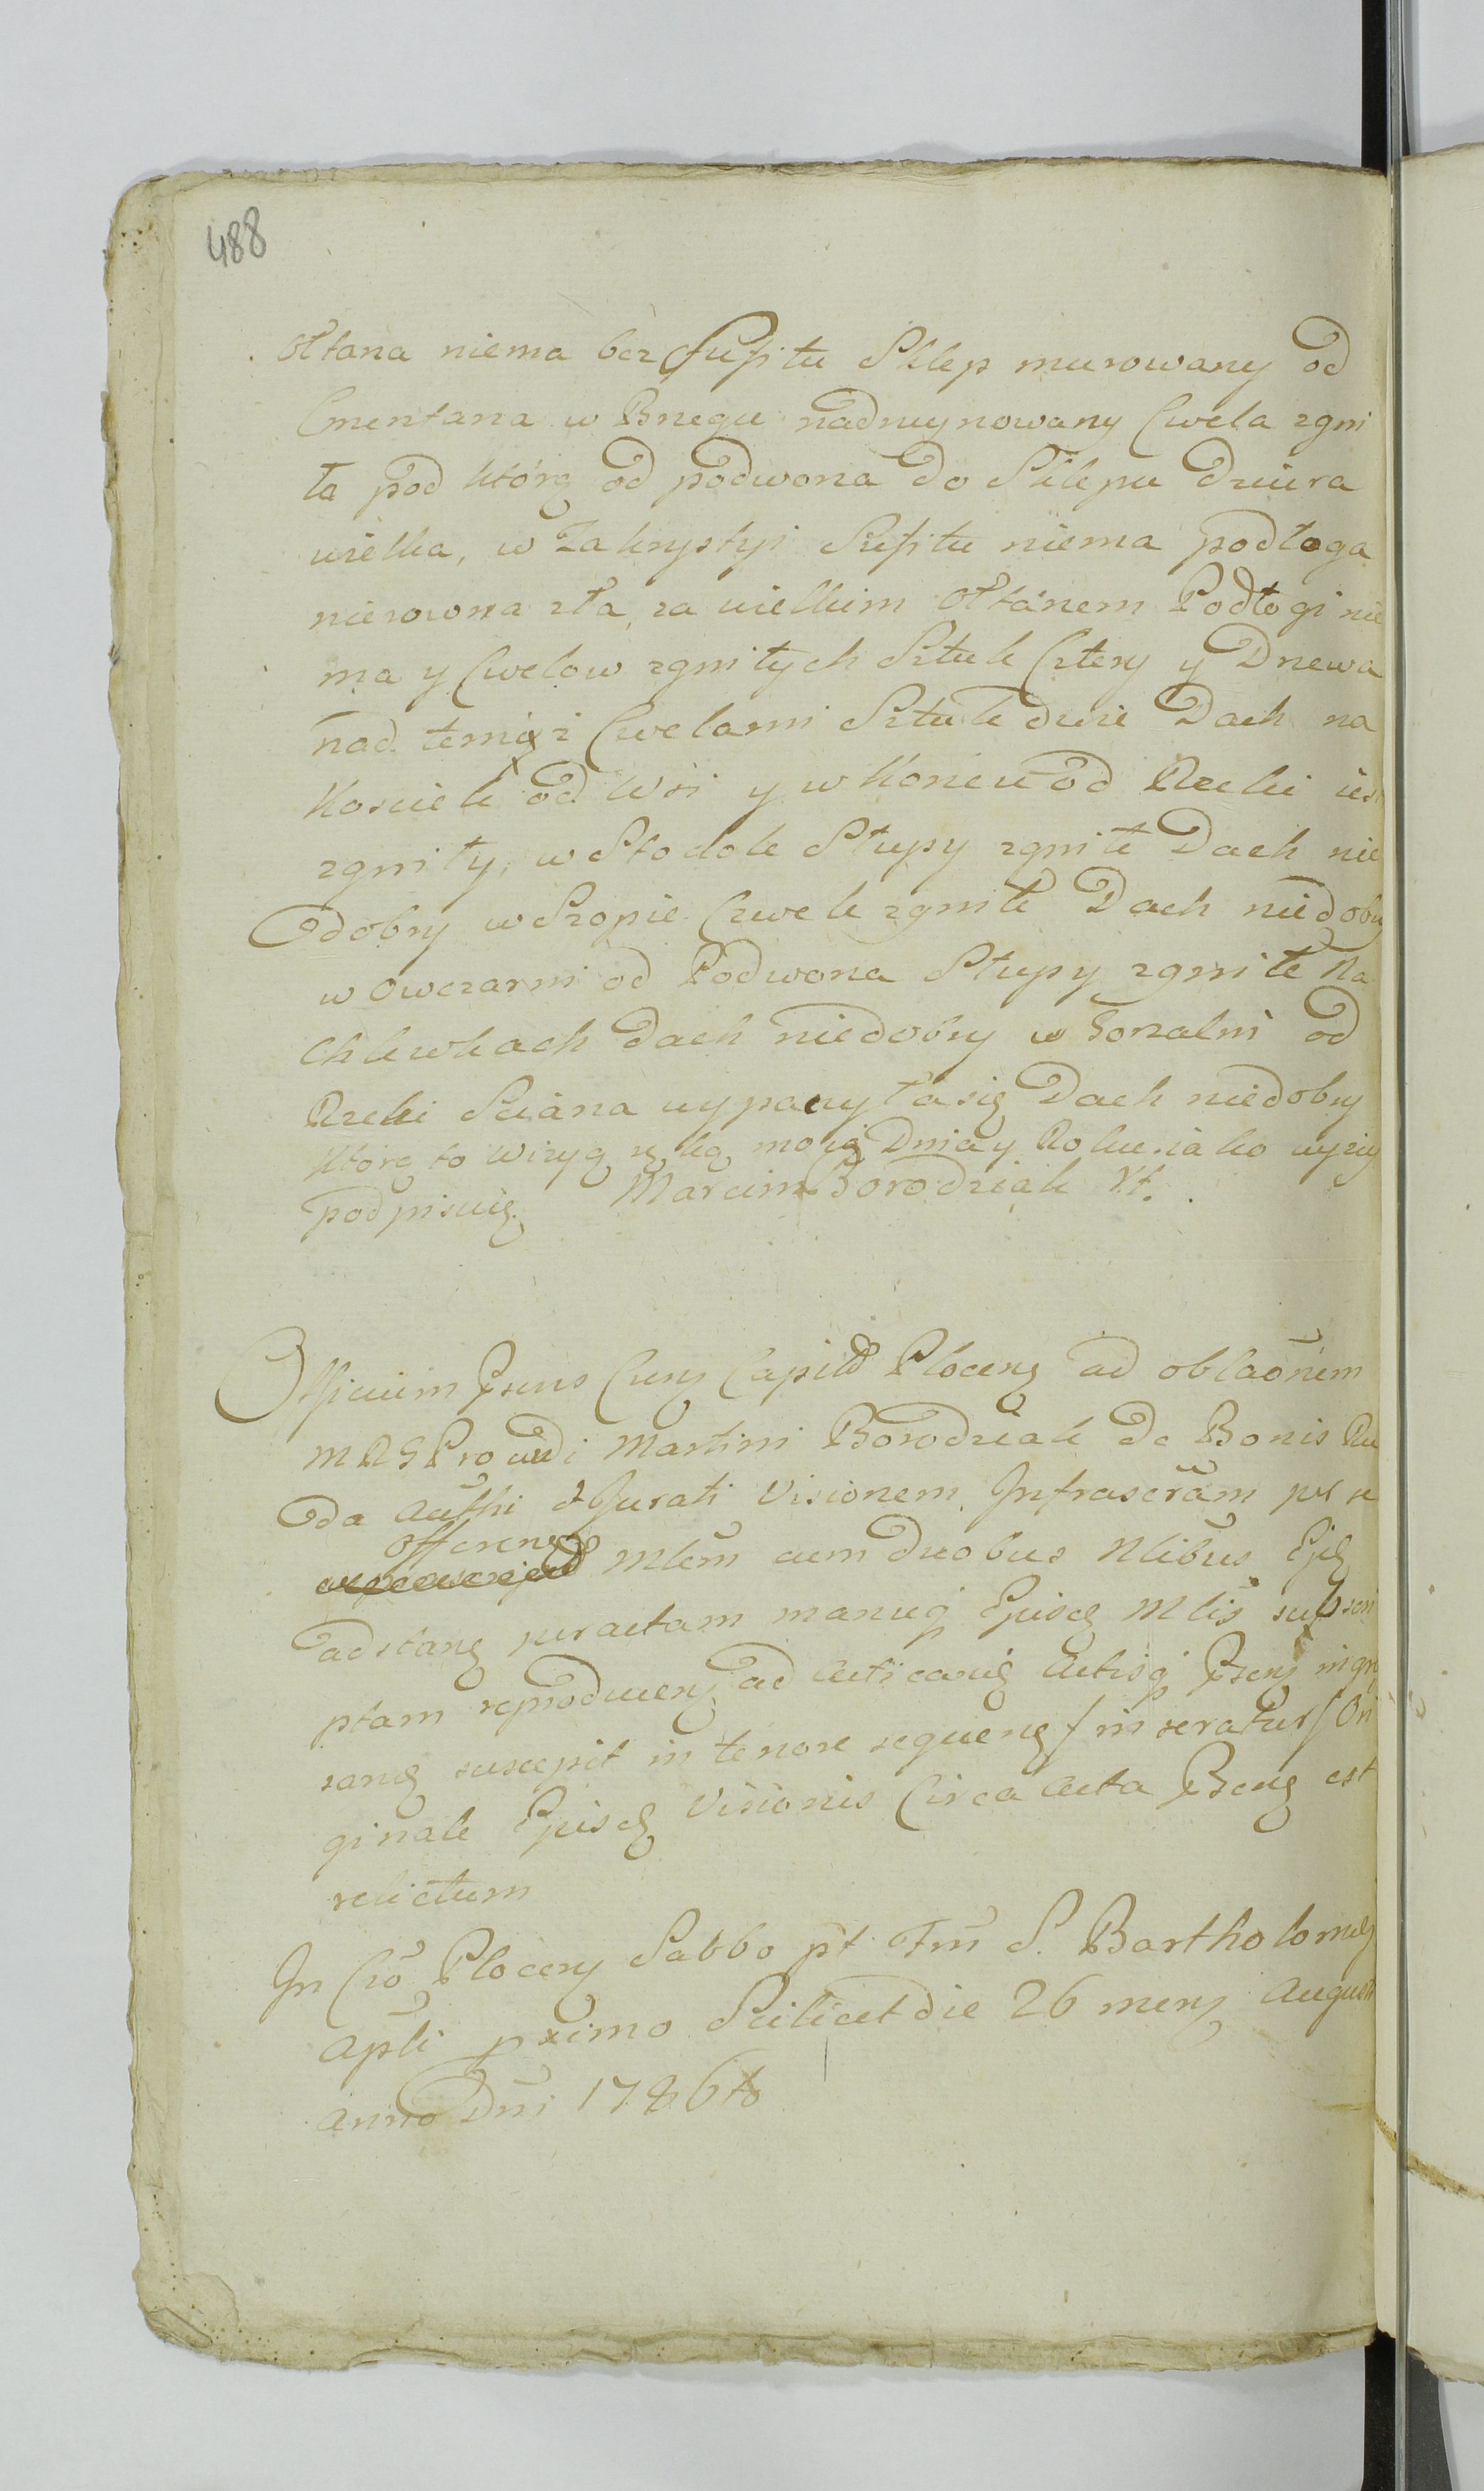 488
Ołtarza niema bez sufitu Sklep murowany od
Cmentarza w Brzegu nadruynowany Cwela zgni
ła pod którą od podworza do Sklepu Dziura
wielka, w Zakrystyi Sufitu niema podłoga
nierowna zła, za wielkim Ołtarzem Podłogi nie
ma y Cwelow zgniłych Sztuk Cztery y Drzewa
nad temiż Cwelami Sztuk dwie Dach na
Kosciele od Wsi y w Koncu od Rzeki iest
zgniły, w Stodole Słupy zgniłe Dach nie
dobry w Szopie Czwele zgniłe Dach niedobry
w Owczarni od Podworza Słupy zgniłe Na
Chlewkach Dach niedobry w Gorzalni od
Rzeki Sciana wypaczyła się Dach niedobry
którą to Wizyą ręką moią Dnia y Roku iako wyzey
podpisuię. Marcin Borodziak
Officium Psens Cap Plocens ad oblaonem
Martini Borodziak de Bonis Ru
da Authi & Jurati Visionem Infrascram per se
offerens
Mlem cum duobus Nlibus
adstan peractam manuq Episd Mlis subscri
ptam reproducen ad Acticand Actisq Psen ingro
sand suscepit in tenore sequen / inseratur / Ori
ginale Episd Visionis Circa Acta Psen est
relictum
In Cro Plocen Sabbo pt Fm S. Bartholomei
Apli pximo Scilicet die 26 mens Augusti
Anno Dni 1786to